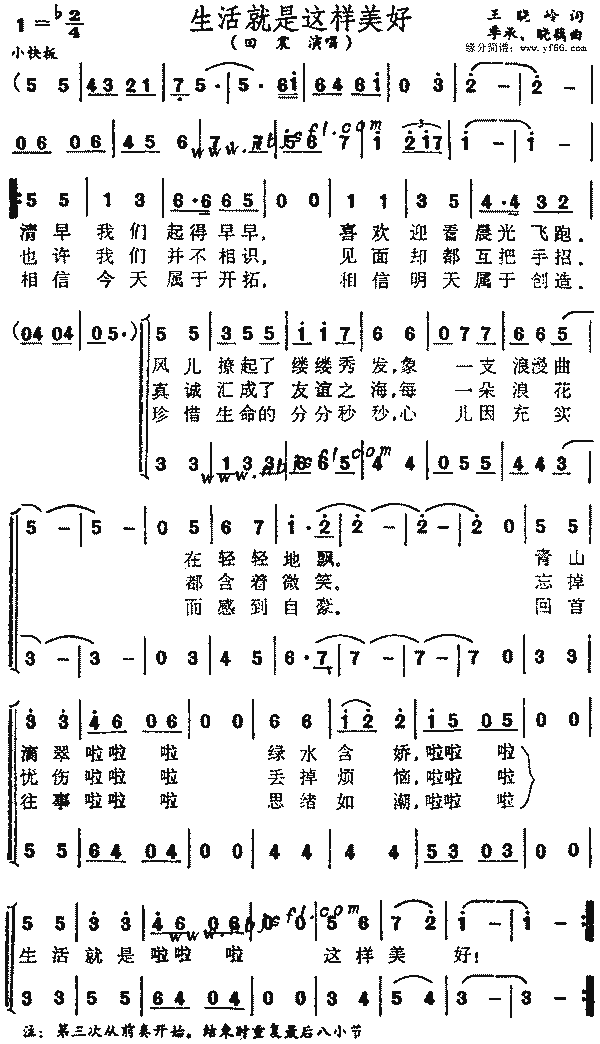 生活就是这样美好
1=♭ 2/4
(田震 演唱)
王晓岭 词
李承、晓藕曲
小快板
缘分简谱:www.yf66.com
(5 5 | 4321 | 7 5· | 5· 6i | 64 6i | 0 3 | 2 – | 2 –
06 06 | 45 6 | 7 · 7 | 56 7 | i 2i7 | i – | i –
www.nbjsfl.com
5 5 | 1 3 | 6·6 65 | 0 0 | 1 1 | 35 5 | 4·4 32
清早 我们 起得早早, 喜欢 迎着 晨光 飞跑.
也许 我们 并不相识, 见面 却都 互把 手招.
相信 今天 属于开拓, 相信 明天 属于 创造.
(04 04 | 05·) 5 5 | 355 5 | ii7 | 6 6 | 077 | 665
风儿 撩起了 缕缕秀 发,象 一支 浪漫曲
真诚 汇成了 友谊之 海,每 一朵 浪花
珍惜 生命的 分分秒 秒,心 儿因 充实
3 3 | 133 | 665 | 4 4 | 055 | 443
www.nbjsfl.com
5 – | 5 – | 0 5 | 6 7 | i·2 | 2 – | 2 – | 2 0 | 5 5
在 轻轻 地飘. 青山
都 含着 微笑. 忘掉
而 感到 自豪. 回首
3 – | 3 – | 0 3 | 4 5 | 6·7 | 7 – | 7 – | 7 0 | 3 3
3 3 | 46 06 | 0 0 | 6 6 | i 2 | i5 05 | 0 0
滴翠 啦啦 啦 绿水 含 娇,啦啦 啦
忧伤 啦啦 啦 丢掉 烦 恼,啦啦 啦
往事 啦啦 啦 思绪 如 潮,啦啦 啦
5 5 | 64 04 | 0 0 | 4 4 | 4 4 | 53 03 | 0 0
5 5 | 3 3 | 46 06 | 0 0 | 5 6 | 7 2 | i – | i –
www.nbjsfl.com
生活 就是 啦啦 啦 这样 美 好!
3 3 | 5 5 | 64 04 | 0 0 | 3 4 | 5 5 | 3 – | 3 –
注: 第三次从前奏开始。结束时重复最后八小节